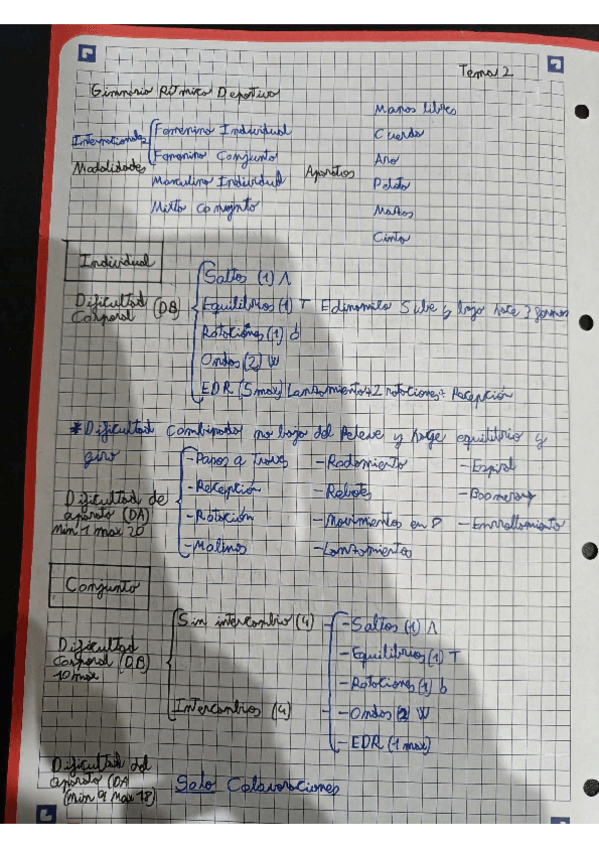 Tema 2
Gimnasia Rítmica Deportiva
Manos libres
Internacionales
Femenino Individual
Cuerda
Femenino Conjunto
Aro
Modalidades
Aparatos
Masculino Individual
Pelota
Mixto Conjunto
Mazas
Cinta
Individual
Dificultad Corporal (DB)
Saltos (1) Λ
Equilibrios (1) T E dinamico Sube y baja hace 3 formas
Rotaciones (1) b
Ondas (2) W
EDR (5 max) Lanzamiento+2 rotaciones+ Recepción
*Dificultad Combinada no baja del Releve y hace equilibrio y giro
Dificultad de aparato (DA)
Min 1 max 20
-Pasos a Traves
-Rodamiento
-Espiral
-Recepción
-Rebotes
-Boomerang
-Rotación
-Movimientos en 8
-Enrrollamiento
-Molinos
-Lanzamientos
Conjunto
Dificultad Corporal (DB)
10 max
Sin intercambio (4)
Intercambios (4)
-Saltos (1) Λ
-Equilibrios (1) T
-Rotaciones (1) b
-Ondas (2) W
-EDR (1 max)
Dificultad del aparato (DA
(Min 9 Max 18)
Solo Colavoraciones